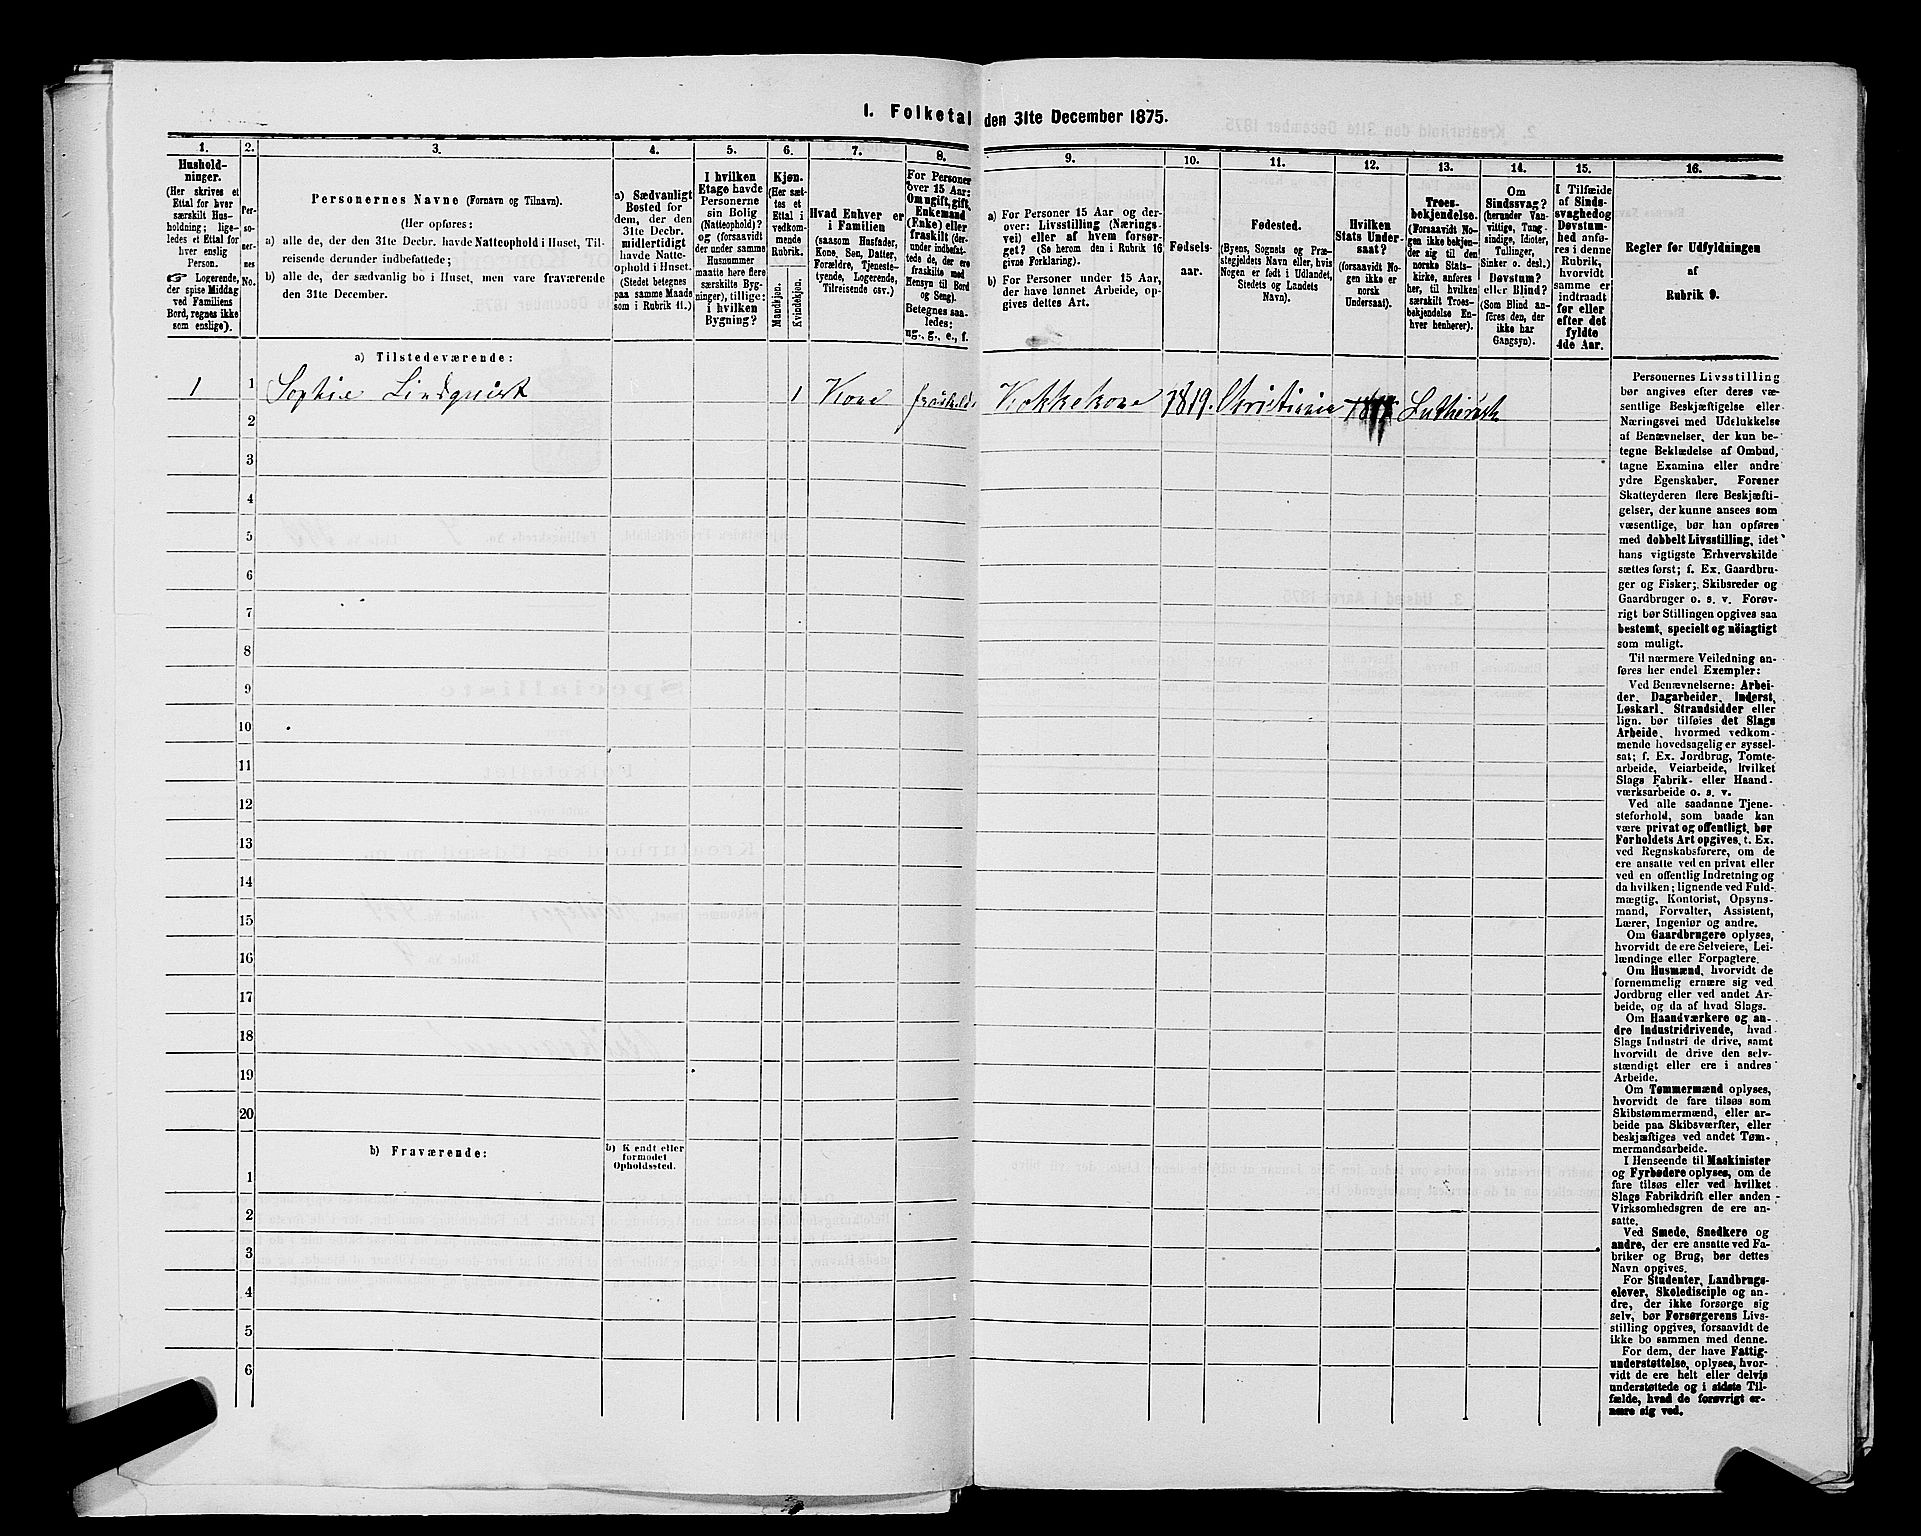 1. Folketal den 31te December 1875.
1.
2.
3.
4.
5.
6.
7.
8.
9.
10.
11.
12.
13.
14.
15.
16.
Hushold-
ninger.
(Her skrives et
Ettal for hver
særskilt Hus-
holdning; lige-
ledes et Ettal for
hver enslig
Person.
☞ Logerende,
der spise Middag
ved Familiens
Bord, regnes ikke
som enslige).
Per-
so-
ner-
nes
No.
Personernes Navne (Fornavn og Tilnavn).
(Her opføres:
a) alle de, der den 31te Decbr. havde Natteophold i Huset, Til-
reisende derunder indbefattede;
b) alle de, der sædvanlig bo i Huset, men vare fraværende
den 31te December.
a) Sædvanligt
Bosted for
dem, der den
31te Decbr.
midlertidigt
havde Natte-
ophold i Huset.
(Stedet betegnes
paa samme Maade
som i Rubrik 11.)
I hvilken
Etage havde
Personerne
sin Bolig
(Natteophold)?
og (forsaavidt
der under samme
Husnummer
maatte høre flere
særskilte Byg-
ninger), tillige:
i hvilken
Bygning?
Kjøn.
(Her sæt-
tes et
Ettal i
vedkom-
mende
Rubrik.
Mandkjøn.
Kvindekjøn.
Hvad Enhver er
i Familien
(saasom Husfader,
Kone, Søn, Datter,
Forældre, Tjeneste-
tyende, Logerende,
Tilreisende osv.)
For Personer
over 15 Aar:
Om ugift, gift,
Enkemand
(Enke) eller
fraskilt (der-
under indbefat-
tede de, der ere
fraskilte med
Hensyn til Bord
og Seng).
Betegnes saa-
ledes:
ug., g., e., f.
a) For Personer 15 Aar og der-
over: Livsstilling (Nærings-
vei) eller af hvem forsør-
get? (Se herom den i Rubrik 16
givne Forklaring).
b) For Personer under 15 Aar,
der have lønnet Arbeide, op-
gives dettes Art.
Fødsels-
aar.
Fødested.
(Byens, Sognets og Præ-
stegjeldets Navn eller, hvis
Nogen er født i Udlandet,
Stedets og Landets
Navn).
Hvilken
Stats Under-
saat?
(forsaavidt No-
gen ikke er
norsk
Undersaat).
Troes-
bekjendelse.
(Forsaavidt No-
gen ikke bekjen-
der sig til den
norske Stats-
kirke, anføres
her, til hvilken
særskilt Troes-
bekjendelse En-
hver henhører).
Om
Sindssvag?
(herunder Van-
vittige, Tung-
sindige, Idioter,
Tullinger,
Sinker o. desl.)
Døvstum?
eller Blind?
(Som Blind an-
føres den, der
ikke har
Gangsyn).
I Tilfælde
af Sinds-
svaghed og
Døvstum-
hed anfø-
res i denne
Rubrik,
hvorvidt
samme er
indtraadt
før eller
efter det
fyldte
4de Aar.
Regler for Udfyldningen
af
Rubrik 9.
a) Tilstedeværende:
1 1 Sophie Lindqvist 1 Kone fraskilt Kokkekone 1819. Christiania Luthersk
2
3
4
5
6
7
8
9
10
11
12
13
14
15
16
17
18
19
20
b) Fraværende:
b) Kendt eller
formodet
Opholdssted.
1
2
3
4
5
6
Personernes Livsstilling
bør angives efter deres væ-
sentlige Beskjæftigelse eller
Næringsvei med Udelukkelse
af Benævnelser, der kun be-
tegne Beklædelse af Ombud,
tagne Examina eller andre
ydre Egenskaber. Forener
Skatteyderen flere Beskjæfti-
gelser, der kunne ansees som
væsentlige, bør han opføres
med dobbelt Livsstilling, idet
hans vigtigste Erhvervskilde
sættes først; f. Ex. Gaardbru-
ger og Fisker; Skibsreder og
Gaardbruger o. s. v. Forøv-
rigt bør Stillingen opgives saa
bestemt, specielt og nöiagtigt
som muligt.
Til nærmere Veiledning an-
føres her endel Exempler:
Ved Benævnelserne: Arbei-
der, Dagarbeider, Inderst,
Løskarl, Strandsidder eller
lign. bør tilføies det Slags
Arbeide, hvormed vedkom-
mende hovedsagelig er syssel-
sat; f. Ex. Jordbrug, Tomte-
arbeide, Veiarbeide, hvilket
Slags Fabrik- eller Haand-
værksarbeide o. s. v.
Ved alle saadanne Tjene-
steforhold, som baade kan
være privat og offentligt, bør
Forholdets Art opgives, t. Ex.
ved Regnskabsførere, om de
ere ansatte ved en privat eller
ved en offentlig Indretning og
da hvilken; lignende ved Fuld-
mægtig, Kontorist, Opsyns-
mand, Forvalter, Assistent,
Lærer, Ingeniør og andre.
Om Gaardbrugere oplyses,
hvorvidt de ere Selveiere, Lei-
lændinge eller Forpagtere.
Om Husmænd, hvorvidt de
fornemmelig ernære sig ved
Jordbrug eller ved andet Ar-
beide, og da af hvad Slags.
Om Haandværkere og an-
dre Industridrivende, hvad
Slags Industri de drive, samt
hvorvidt de drive den selv-
stændigt eller ere i andres
Arbeide.
Om Tømmermænd oplyses,
hvorvidt de fare tilsøs som
Skibstømmermænd, eller ar-
beide paa Skibsværfter, eller
beskjæftiges ved andet Tøm-
mermandsarbeide.
I Henseende til Maskinister
og Fyrbødere oplyses, om de
fare tilsøs eller ved hvilket
Slags Fabrikdrift eller anden
Virksomhedsgren de ere an-
satte.
Ved Smede, Snedkere og
andre, der ere ansatte ved Fa-
briker og Brug, bør dettes
Navn opgives.
For Studenter, Landbrugs-
elever, Skoledisciple og an-
dre, der ikke forsørge sig
selv, bør Forsørgerens Livs-
stilling opgives, forsaavidt de
ikke bo sammen med denne.
For dem, der have Fattig-
understøttelse, oplyses, hvor-
vidt de ere helt eller delvis
understøttede og i sidste Til-
fælde, hvad de forøvrigt er-
nære sig ved.